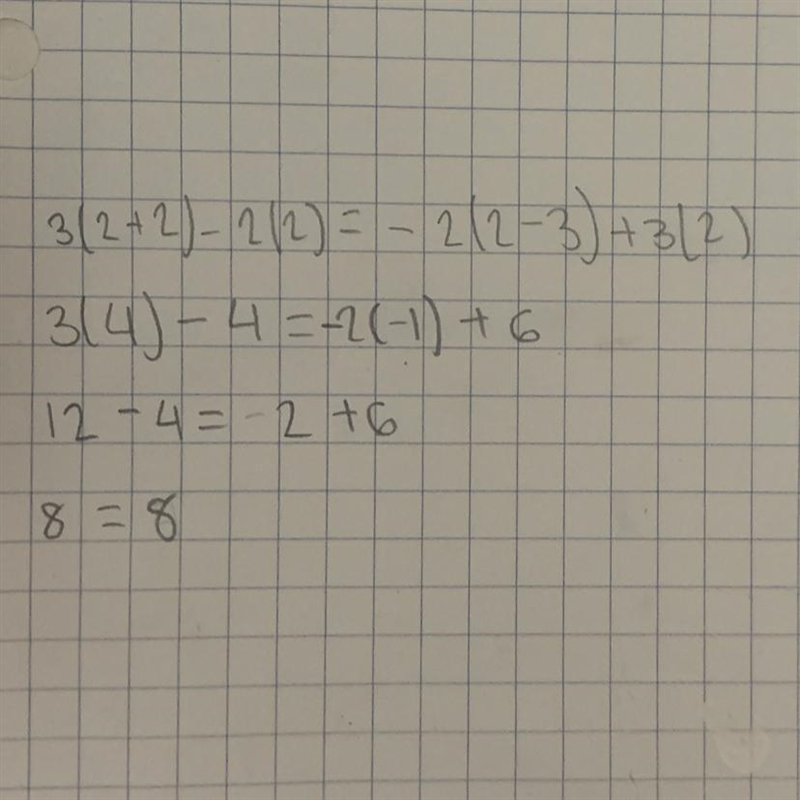 3(2+2)-2(2)=-2(2-3)+3(2)
3(4)-4=-2(-1)+6
12-4=2+6
8=8